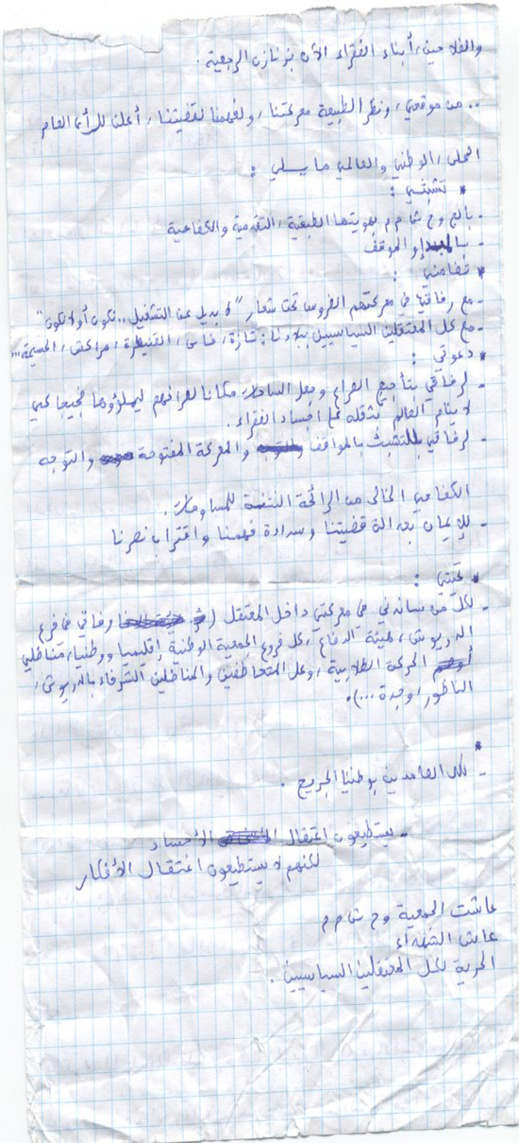 والفلاحين، أبناء الفقراء الآن بزنازن الرجعية.
.. من موقعي، ونظرا لطبيعة معركتنا، ولفهمنا لقضيتنا، أعلن للرأي العام
المحلي، الوطني والعالمي ما يلي :
* تشبثي :
- بالج و ح ش م م بهويتها الطبقية، التقدمية والكفاحية
- بالمبدإ والموقف
* تضامني :
- مع رفاقي في معركتهم الضروس تحت شعار "لا بديل عن التشغيل.. نكون أو لا نكون"
- مع كل المعتقلين السياسيين ببلادنا : تازة، فاس، القنيطرة، مراكش، الحسيمة...
* دعوتي :
- لرفاقي بتأجيج الصراع وجعل الساحات مكانا لعرافهم ليملؤوها ضجيجا كي
لا ينام العالم بثقله على أجساد الفقراء.
- لرفاقي بالتشبث بالمواقف والمعركة المفتوحة والتوجه
الكفاحي الخالي من الرائحة النتنة للمساومات.
- للإيمان بعدالة قضيتنا وسدادة فهمنا واقتراب نصرنا
* تحيتي :
- لكل من ساندني في معركتي داخل المعتقل (رفاقي في فرع
الدريوش، لهيئة الدفاع، كل فروع الجمعية الوطنية إقليميا ووطنيا، مناضلي
الحركة الطلابية، وكل المتعاطفين والمناضلين الشرفاء بالدريوش،
الناظور، وجدة...).
*
- لكل الصامدين بوطننا الجريح.
- يستطيعون اعتقال الأجساد
لكنهم لا يستطيعون اعتقال الأفكار
عاشت الجمعية و ح ش م م
عاش الشهداء
الحرية لكل المعتقلين السياسيين.